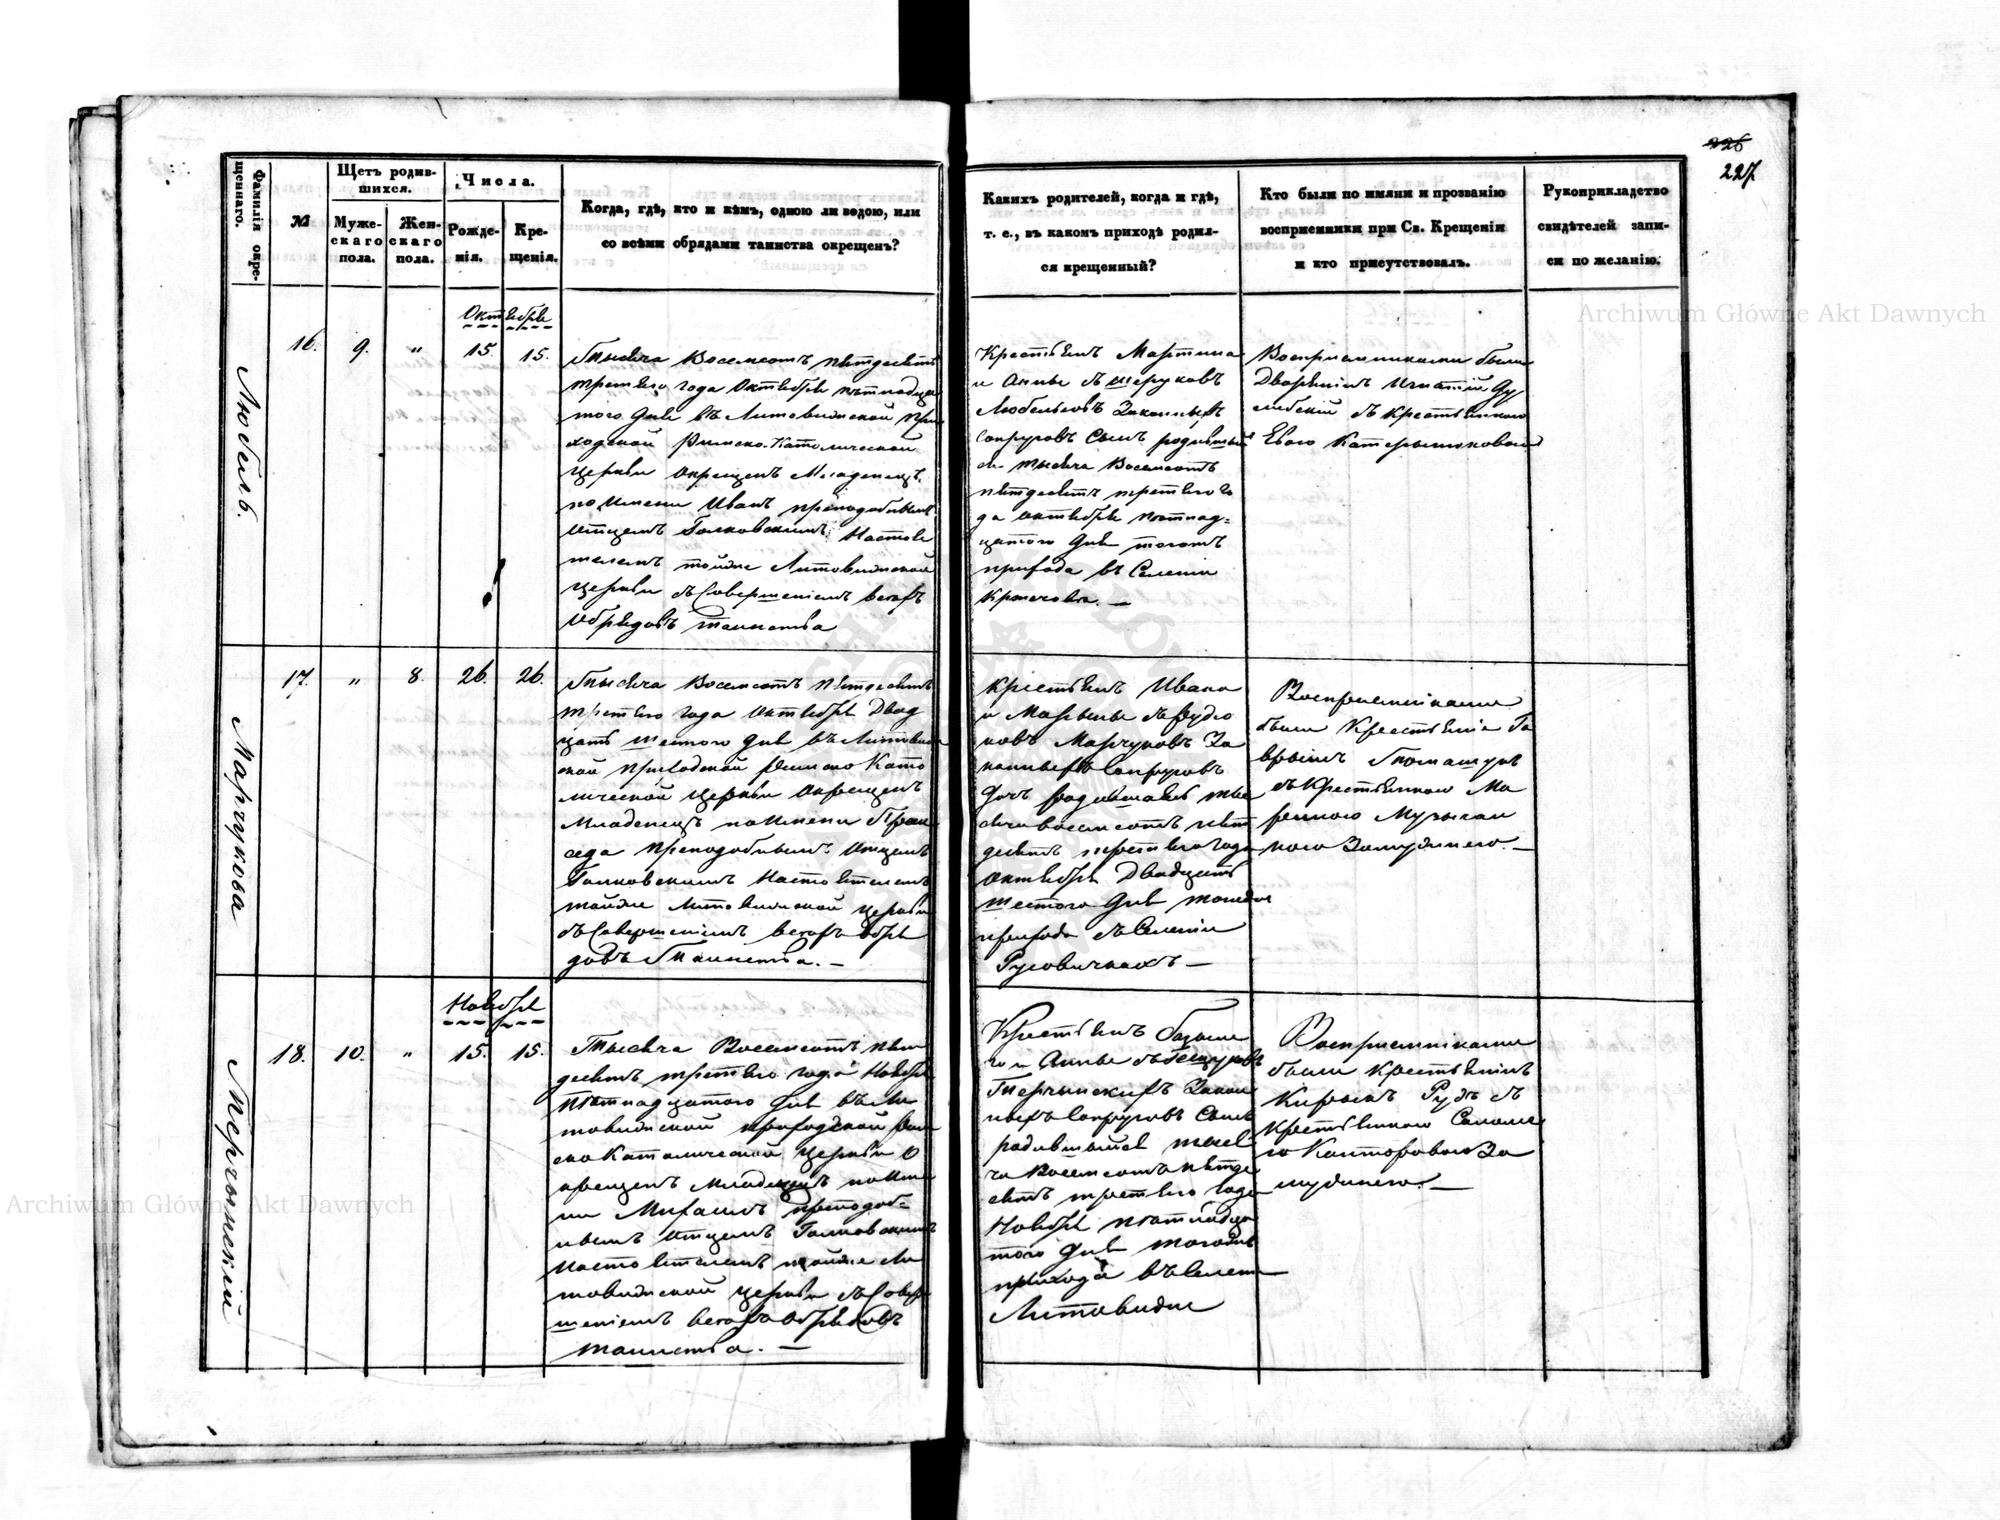 226
227
Фамилія окре-
щеннаго.
№
Щетъ родив-
шихся.
Муже-
скаго
пола.
Жен-
скаго
пола.
Числа.
Рожде-
нія.
Кре-
щенія.
Когда, гдѣ, кто и кѣмъ, одною ли водою, или
со всѣми обрядами таинства окрещенъ?
Каихъ родителей, когда и гдѣ,
т. е., въ какомъ приходѣ родил-
ся крещенный?
Кто были по имяни и прозванію
восприемники при Св. Крещеніи
и кто присутствовалъ.
Рукоприкладство
свидѣтелей запи-
си по желанію.
Любель.
16.
9.
"
Октября
15.
15.
Тысяча Восемсотъ пятдесятъ
третьяго года Октября пятнадца
того дня въ Литовижской при
ходской Римско-Католической
церкви окрещенъ Младенецъ
по имени Иванъ преподобнымъ
Отцемъ Галковскимъ Настоя
телемъ тойже Литовижской
церкви съ Совершеніемъ всехъ
Обрядовъ таинства
Крестьянъ Мартина
и Анны съ
Любельовъ Законныхъ
Супруговъ Сынъ родивший
ся тысяча Восемсотъ
пятдесятъ третьяго го
да октября пятнад=
цатого дня тогожъ
прихода въ Селеніи
Восприемниками были
Дворянинъ Игнатій
съ крестьянкою
Евою
Марчукова
17.
"
8.
26.
26.
Тысяча Восемсотъ пятдесятъ
третьяго года Октября Двад
цать шестого дня въ Литовиж
ской приходской Римско Като
лической церкви окрещенъ
Младенецъ по имени Прак
седа преподобнымъ Отцемъ
Галковскимъ Настоятелемъ
тойже Литовижской церкви
съ Совершеніемъ всехъ обря
довъ Таинства. —
Крестьянъ Ивана
и Марьяны съ Рудко
ковъ Марчуковъ За
конныхъ Супруговъ
дочь родившаяся тыс
яча восемсотъ пят
десятъ третьяго года
Октября Двадцать
шестого дня тогоже
прихода въ Селеніи
Русовичкахъ —
Восприемниками
были Крестьяне Га
врыилъ
съ Крестьянкою Ма
рыною
кою Замужнею. —
Терчынскій
18.
10.
"
Ноября
15.
15.
Тысяча Восемсотъ пят
десятъ третьяго года Ноября
Пятнадцатого дня въ Ли
товижской приходской Рим
ско Католической церкви о
крещенъ Младенецъ по име
ни Михаилъ преподоб=
нымъ отцемъ Галковскимъ
настоятелемъ тойже Ли
товижской церкви съ Совер
шеніемъ всехъ обрядовъ
таинства. —
Крестьянъ
го и Анны съ
Терчынскихъ Закон
ныхъ Супруговъ Сынъ
родившыйся тыся
ча Восемсотъ пятде
сятъ третьяго года
Ноября пятнадца
того дня тогожъ
прихода въ Селени
Литовижи
Восприемниками
были Крестьянинъ
Кирыкъ Рудъ съ
Крестьянкою Саломе
ю Канторовою За
мужнею. —
Archiwum Główne Akt Dawnych
Archiwum Główne Akt Dawnych